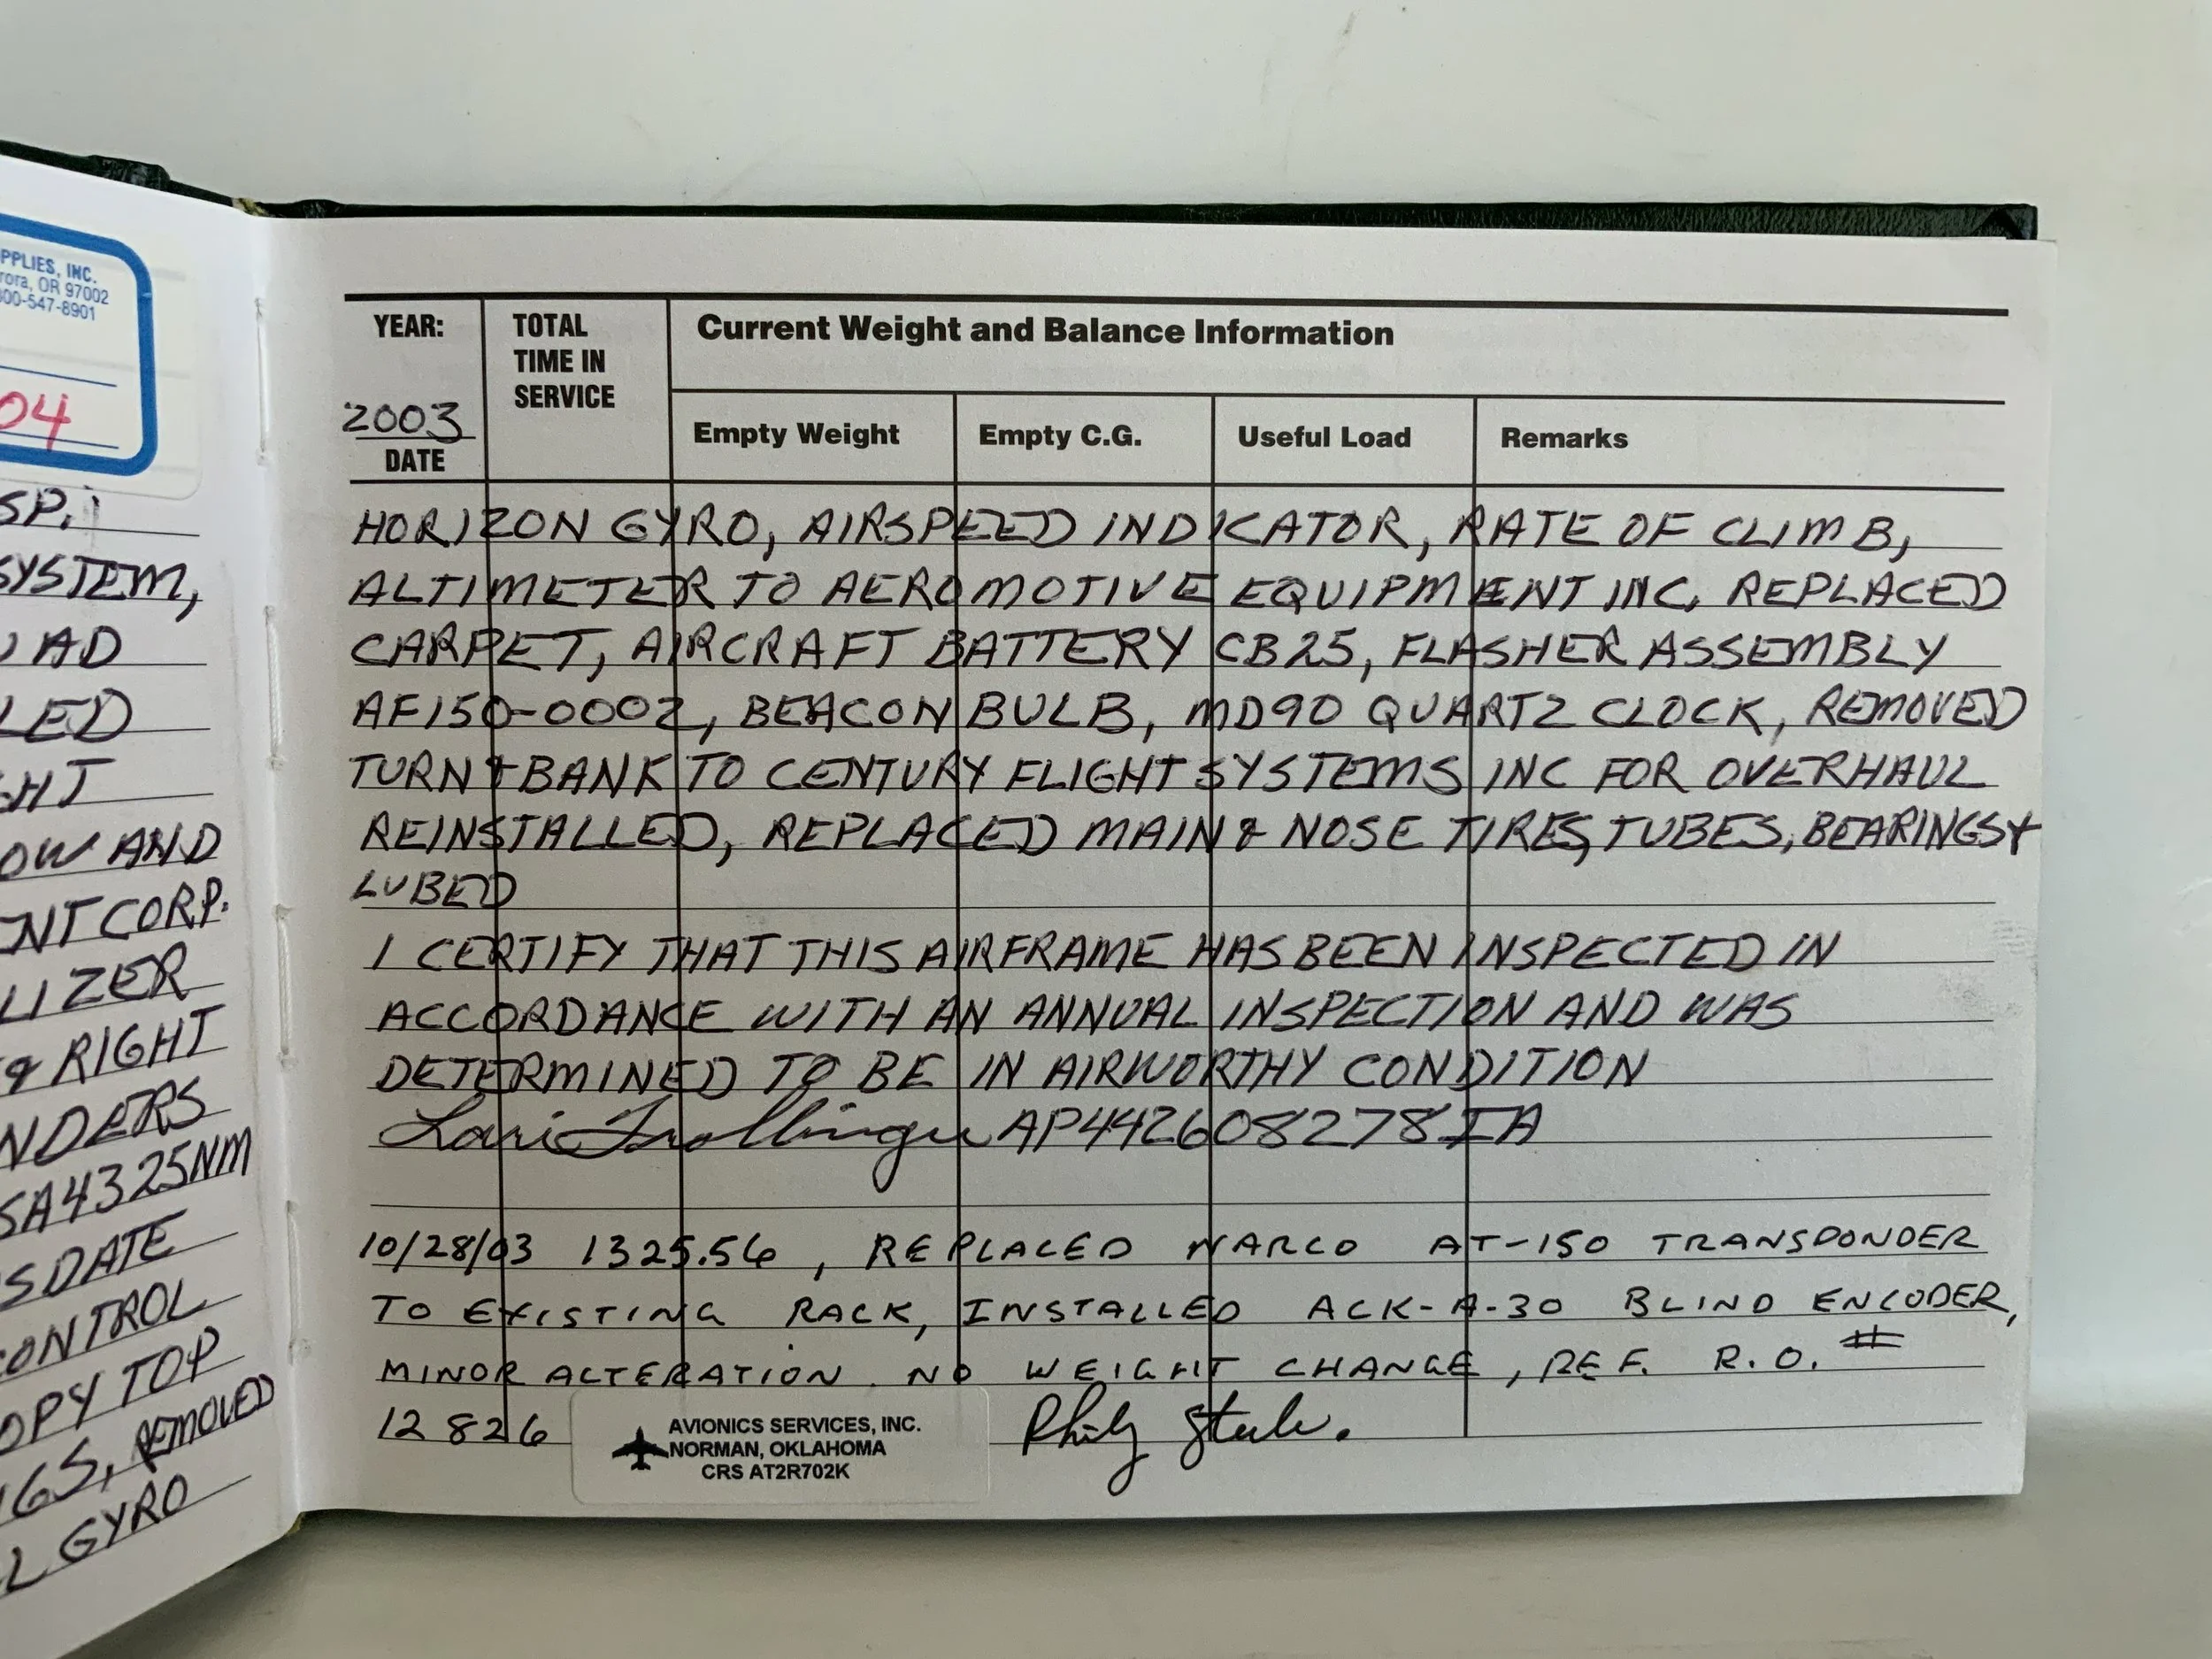 PPLIES, INC.
rora, OR 97002
00-547-8901
04
SP.
SYSTEM,
AD
LED
HT
OW AND
NT CORP.
LIZER
& RIGHT
NDERS
SA4325NM
S DATE
CONTROL
OPY TOP
GS, REMOVED
L GYRO
YEAR:
2003
DATE
TOTAL
TIME IN
SERVICE
Current Weight and Balance Information
Empty Weight Empty C.G. Useful Load Remarks
HORIZON GYRO, AIRSPEED INDICATOR, RATE OF CLIMB,
ALTIMETER TO AEROMOTIVE EQUIPMENT INC. REPLACED
CARPET, AIRCRAFT BATTERY CB25, FLASHER ASSEMBLY
AF150-0002, BEACON BULB, MD90 QUARTZ CLOCK, REMOVED
TURN & BANK TO CENTURY FLIGHT SYSTEMS INC FOR OVERHAUL
REINSTALLED, REPLACED MAIN & NOSE TIRES, TUBES, BEARINGS &
LUBED
I CERTIFY THAT THIS AIRFRAME HAS BEEN INSPECTED IN
ACCORDANCE WITH AN ANNUAL INSPECTION AND WAS
DETERMINED TO BE IN AIRWORTHY CONDITION
Lori Trollinger AP442608278IA
10/28/03 1325.56, REPLACED NARCO AT-150 TRANSPONDER
TO EXISTING RACK, INSTALLED ACK-A-30 BLIND ENCODER,
MINOR ALTERATION. NO WEIGHT CHANGE, REF. R.O. #
12826
AVIONICS SERVICES, INC.
NORMAN, OKLAHOMA
CRS AT2R702K